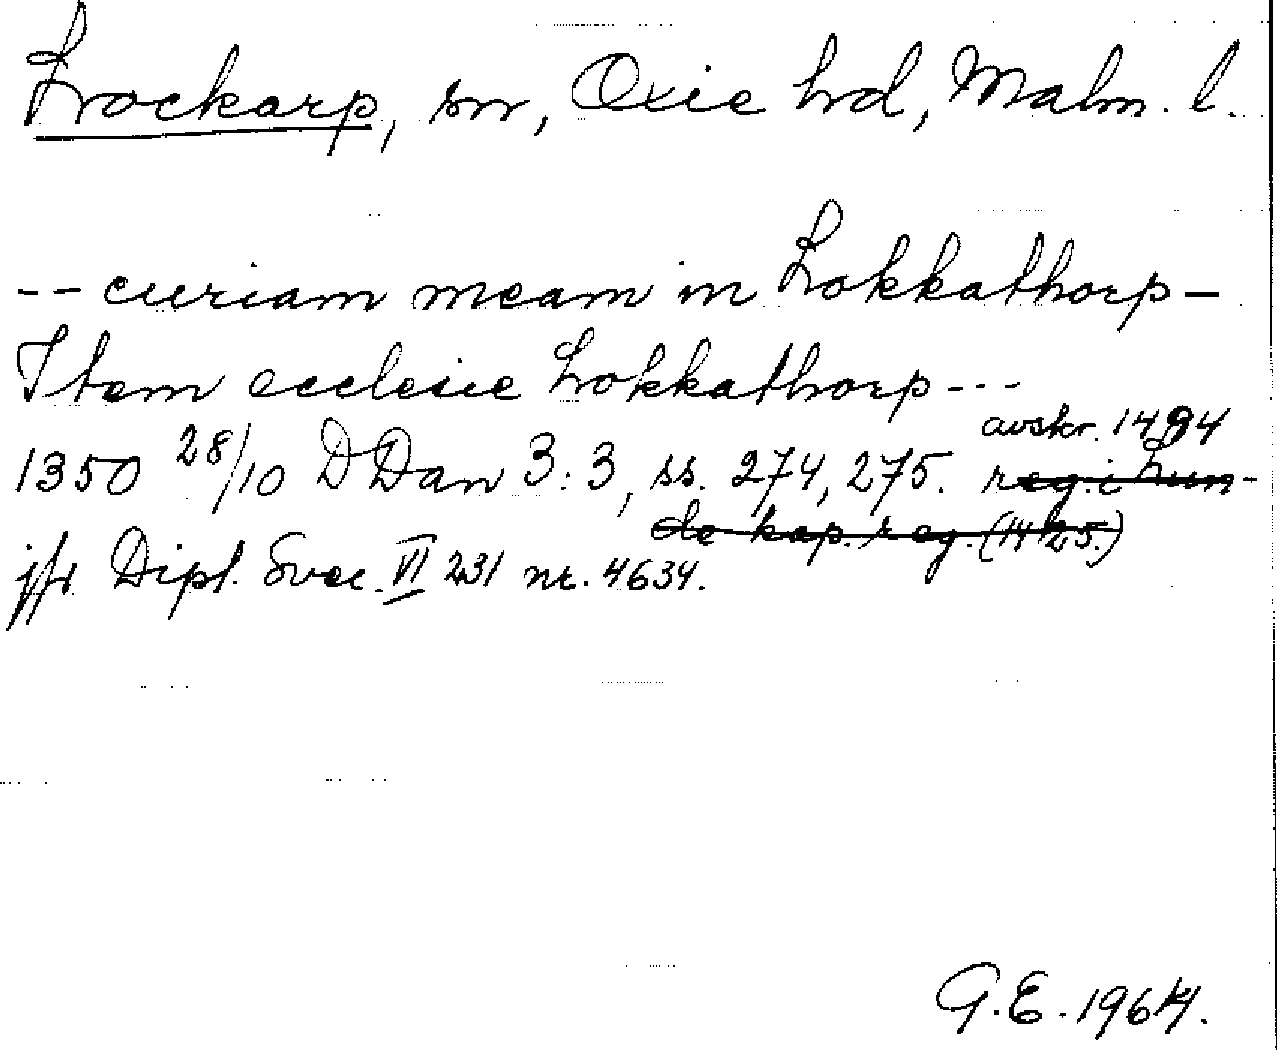 Lockarp, sn, Oxie hd, Malm. l.
-- curiam meam in Lokkathorp -
Item ecclesie Lokkathorp ---
avskr. 1494
1350 28/10 DDan 3:3, ss. 274, 275. reg. i Lun-
de kap. reg. (1425.)
jfr Dipl. Svec. VI 231 nr. 4634.
G.E. 1964.